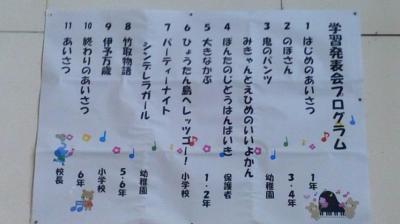 学習発表会プログラム
1 はじめのあいさつ 1年
2 のぼさん 3・4年
3 鬼のパンツ 幼稚園
みきゃんとえひめのいいよかん
4 ぽんたのじどうはんばいき 保護者
5 大きなかぶ 1・2年
6 ひょうたん島へレッツゴー! 小学校
7 パーティーナイト
シンデレラガール 幼稚園
8 竹取物語 5・6年
9 伊予万歳 小学校
10 終わりのあいさつ 6年
11 あいさつ 校長